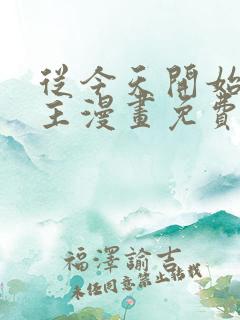 從今天開始
王漫畫免費
福澤諭吉
未經同意禁止轉載